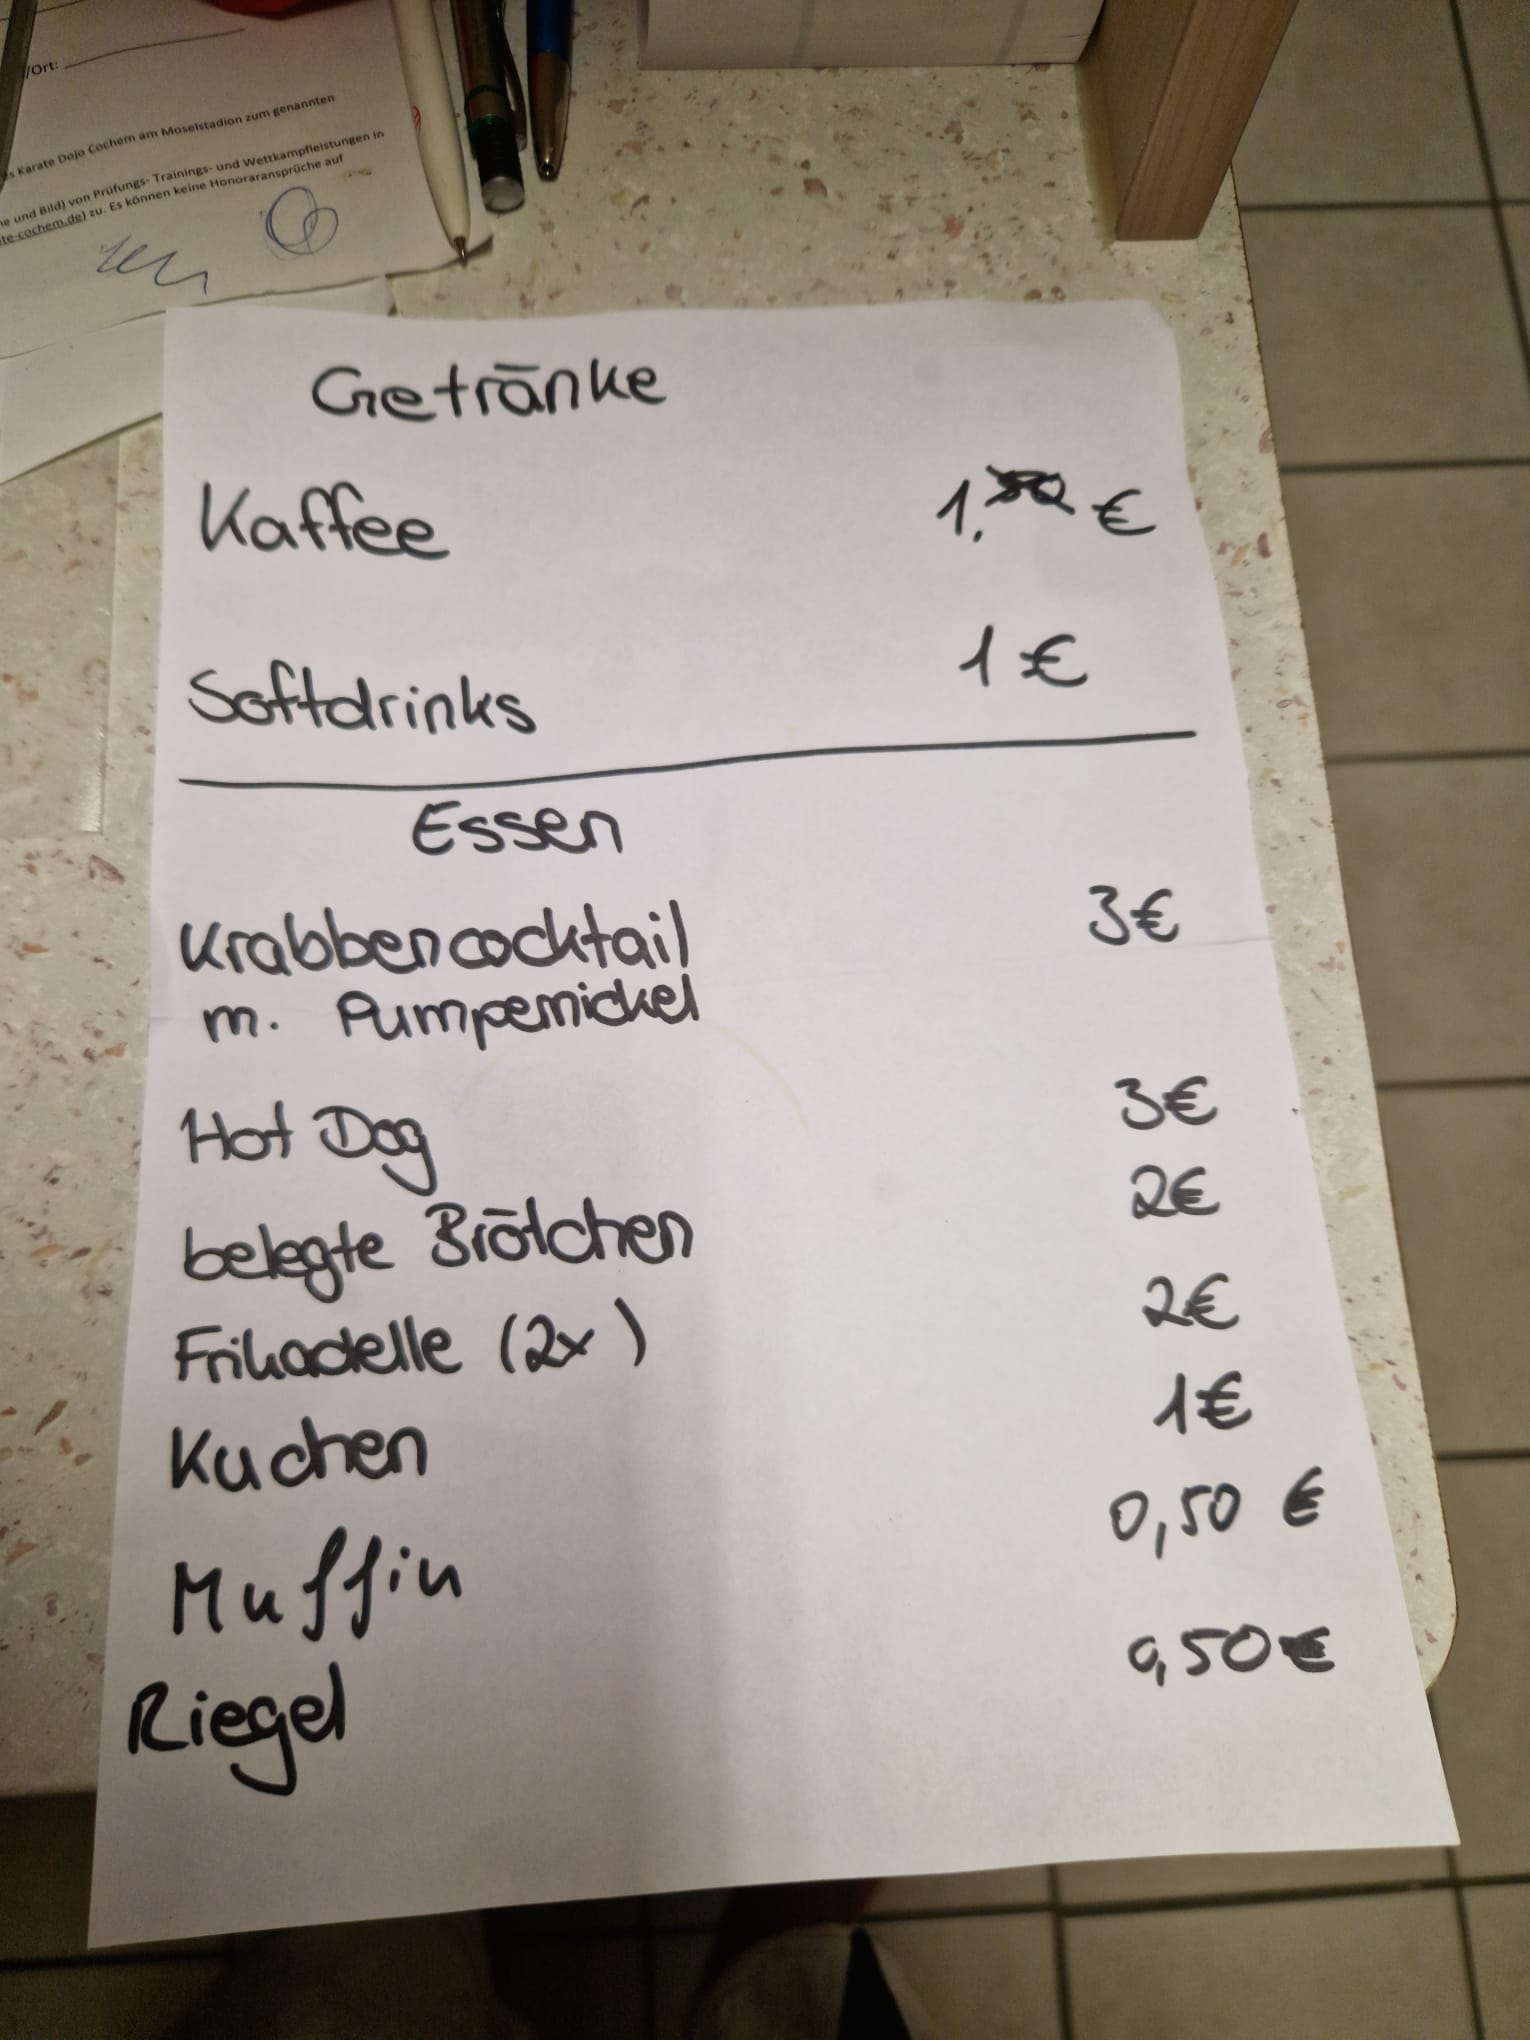 /Ort:
s Karate Dojo Cochem am Moselstadion zum genannten
ne und Bild) von Prüfungs- Trainings- und Wettkampfleistungen in
te-cochem.de) zu. Es können keine Honoraransprüche auf
Getränke
Kaffee 1, €
Softdrinks 1 €
Essen
Krabbencocktail 3€
m. Pumpernickel
Hot Dog 3€
belegte Brötchen 2€
Frikadelle (2x) 2€
Kuchen 1€
Muffin 0,50 €
Riegel 0,50€